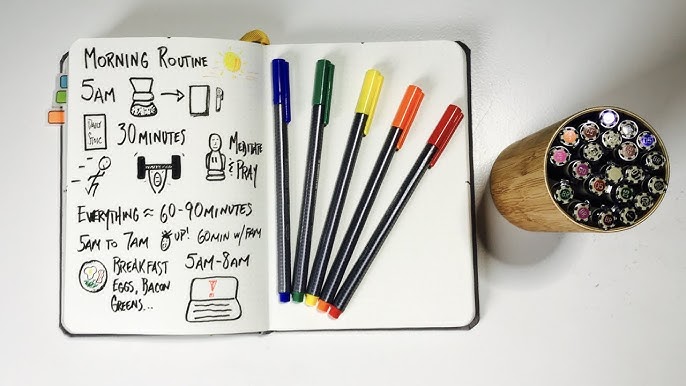 MORNING ROUTINE
5AM
DAILY
STOIC
30 MINUTES
MEDITATE
& PRAY
EVERYTHING ≈ 60-90 MINUTES
5AM TO 7AM UP! 60MIN W/ FAM
BREAKFAST
EGGS, BACON
GREENS...
5AM-8AM